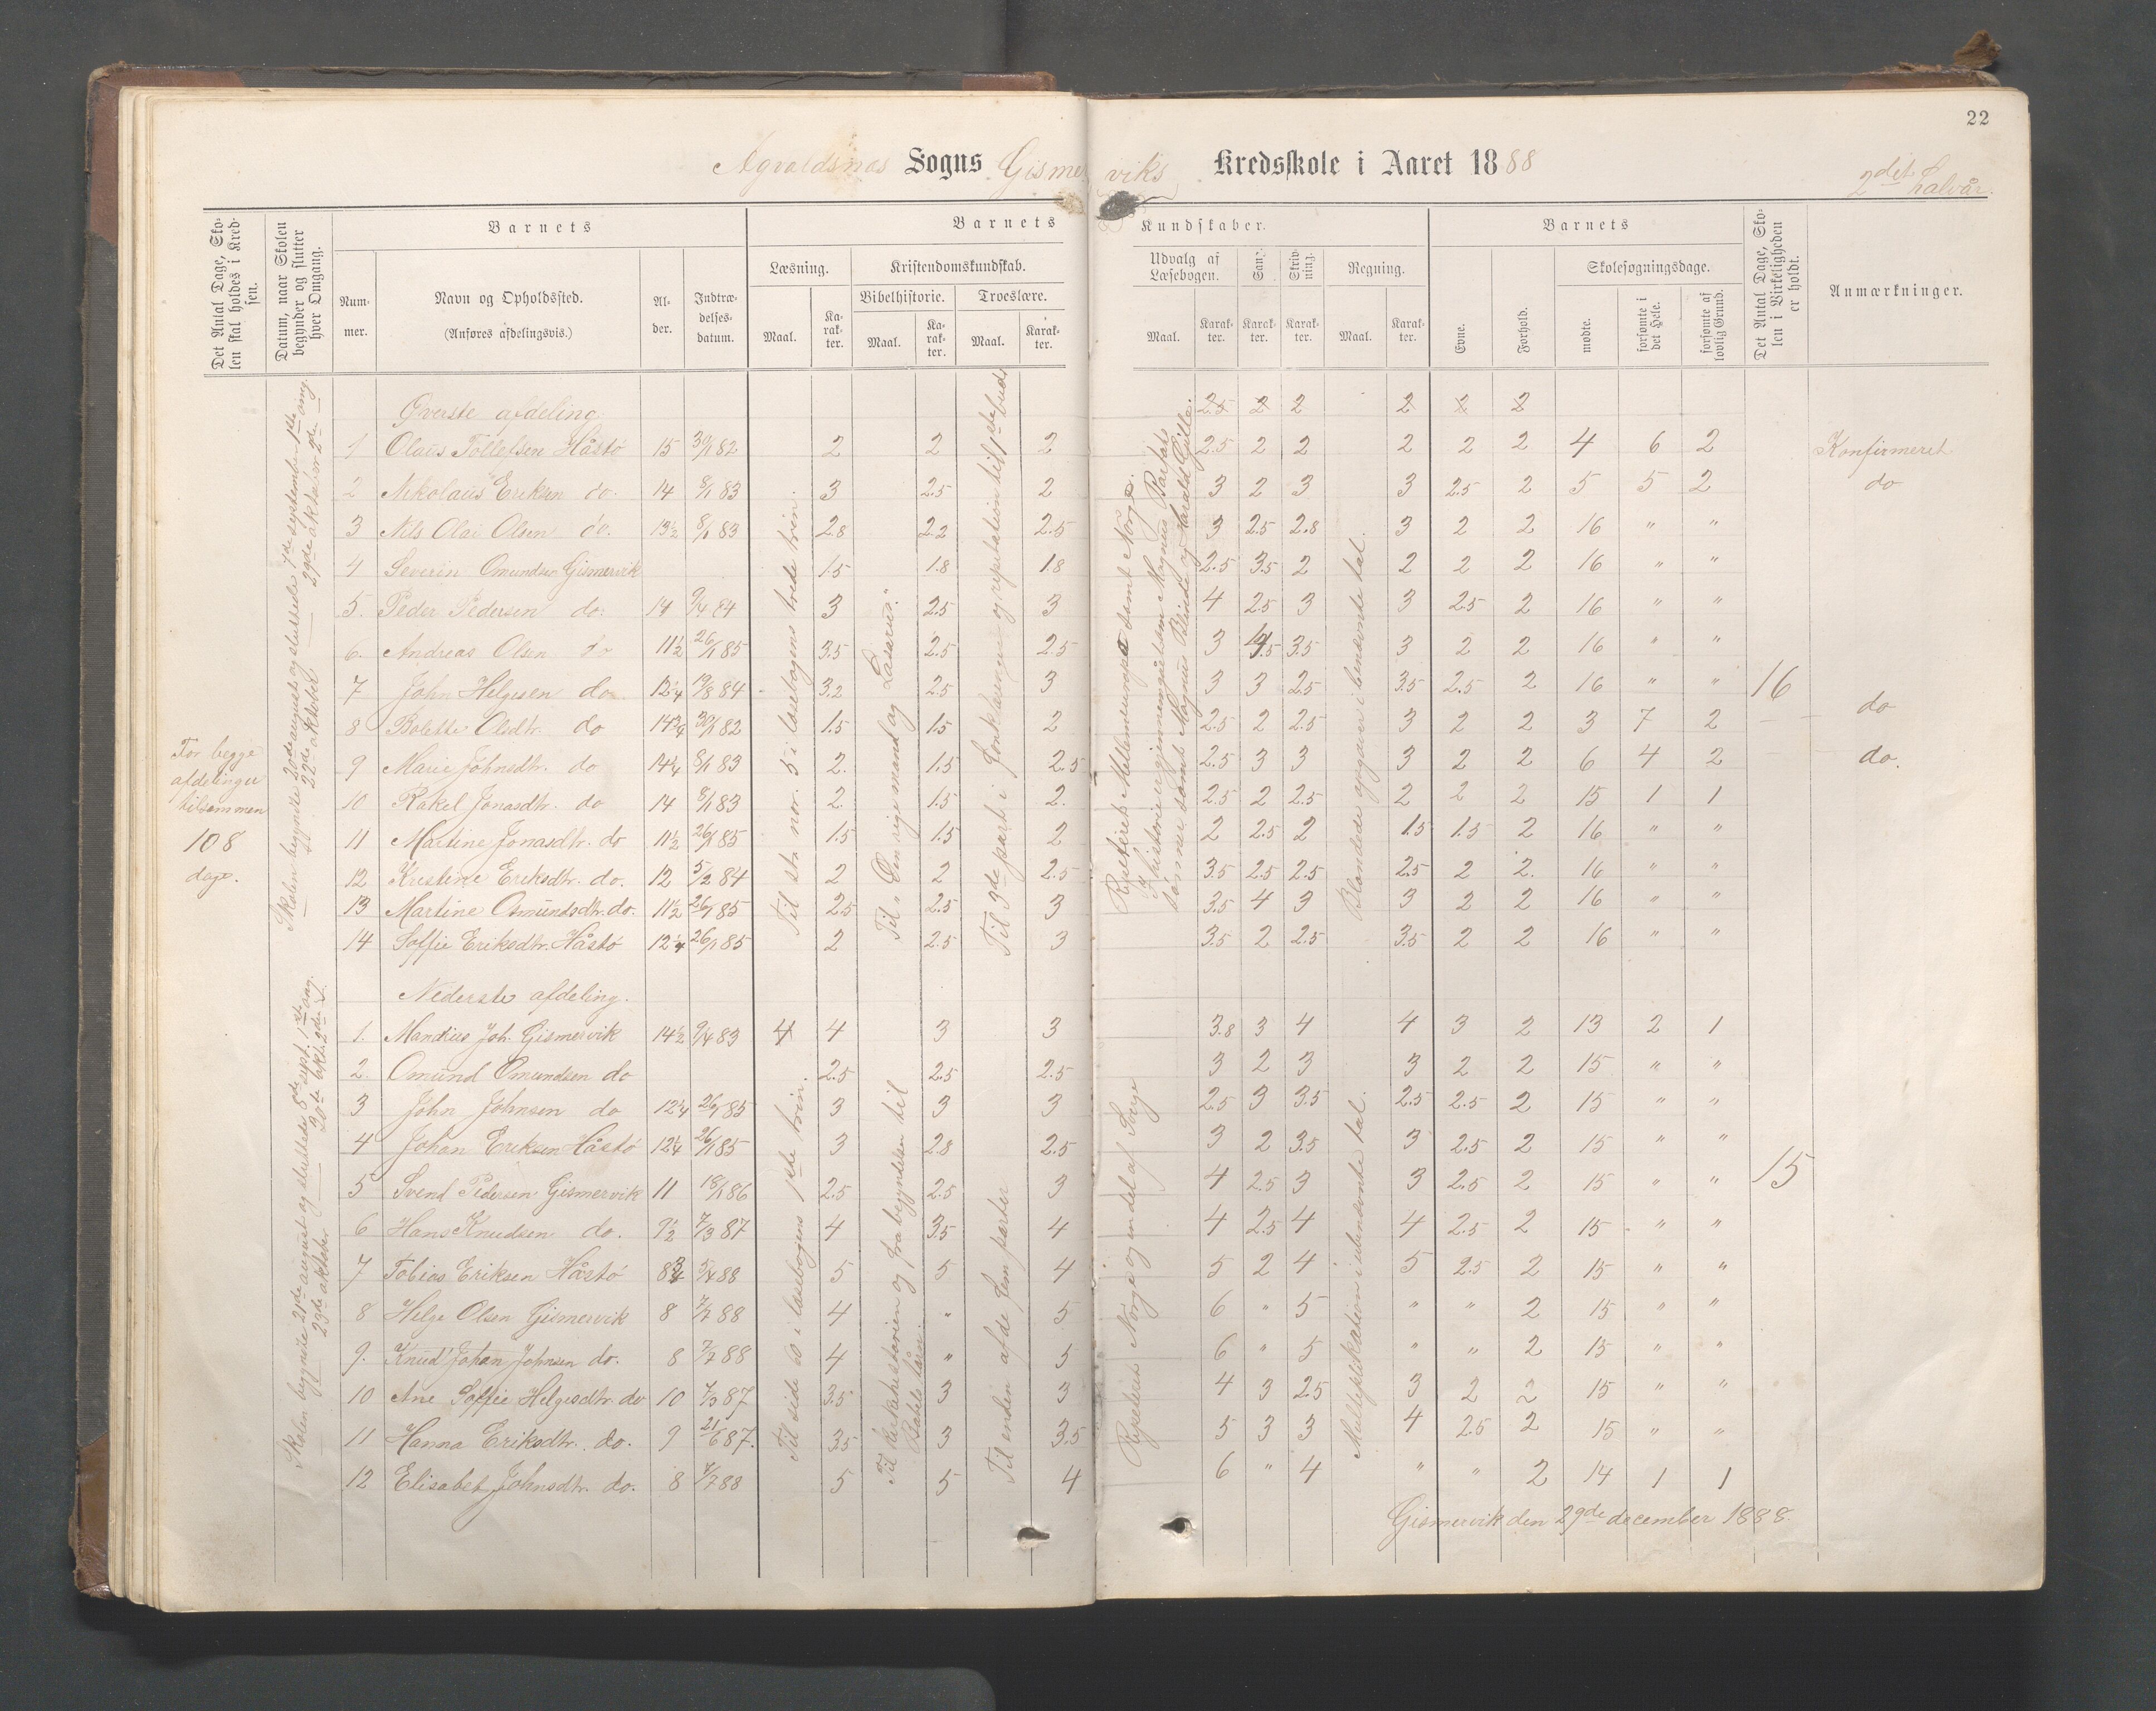 22
Agvaldsnæs Sogns Gismerviks Kredsskole i Aaret 1888
2det halvår.
Det Antal Dage, Skolen skal holdes i Kredsen.
Datum, naar Skolen begynder og slutter hver Omgang.
Barnets
Barnets Kundskaber.
Barnets
Det Antal Dage, Skolen i Virkeligheden er holdt.
Anmærkninger.
Nummer.
Navn og Opholdssted.
(Anføres afdelingsvis.)
Alder.
Indtrædelsesdatum.
Læsning.
Kristendomskundskab.
Bibelhistorie.
Troeslære.
Udvalg af Læsebogen.
Sang.
Skrivning.
Regning.
Evne.
Forhold.
Skolesøgningsdage.
mødte.
forsømte i det Hele.
forsømte af lovlig Grund.
Maal. Karakter. Maal. Karakter. Maal. Karakter. Maal. Karakter. Karakter. Karakter. Maal. Karakter.
For begge
afdelinger
tilsammen
108
dage.
Skolen begyndte 20de august og sluttede 7de september 1ste omg.
— " — 22de oktober — " — 29de oktober 2den —
Øverste afdeling 2.5 2 2 2 2 2
1 Olaus Tollefsen Håstø 15 30/1 82 2 2 2 2.5 2 2 2 2 2 4 6 2 Konfirmeret
2 Nikolaus Eriksen do. 14 8/1 83 3 2.5 2 3 2 3 3 2.5 2 5 5 2 do
3 Nils Olai Olsen do. 13½ 8/1 83 2.8 2.2 2.5 3 2.5 2.8 3 2 2 16 " "
4 Severin Omundsen Gismervik 1.5 1.8 1.8 2.5 3.5 2 2 2 2 16 " "
5. Peder Pedersen do. 14 9/4 84 3 2.5 3 4 2.5 3 3 2.5 2 16 " "
6. Andreas Olsen do 11½ 26/1 85 3.5 2.5 2.5 3 4.5 3.5 3 2 2 16 " "
7 John Helgesen do 12¼ 19/8 84 3.2 2.5 3 3 3 2.5 3.5 2.5 2 16 " " 16
8 Bolette Olsdtr. do 14¾ 30/1 82 1.5 1.5 2 2.5 2 2.5 3 2 2 3 7 2 do
9 Marie Johnsdtr. do 14¼ 8/1 83 2. 1.5 2.5 2.5 3 3 3 2 2 6 4 2 do.
10 Rakel Jonasdtr. do 14 8/1 83 2. 1.5 2. 2.5 2 2.5 2 2 2 15 1 1
11 Martine Jonasdtr. do 11½ 26/1 85 1.5 1.5 2 2 2.5 2 1.5 1.5 2 16 " "
12 Kristine Eriksdtr. do. 12 5/2 84 2 2 2.5 3.5 2.5 2.5 2.5 2 2. 16 " "
13 Martine Omundsdtr. do. 11½ 26/1 85 2.5 2.5 3 3.5 4 3 3 2 2 16 " "
14 Soffie Eriksdtr. Håstø 12¼ 26/1 85 2 2.5 3 3.5 2 2.5 3.5 2 2 16 " "
Til stk nor. 5 i læsebogens tredie trin.
Til "Den rige mand og Lasarus."
Til 3die part i forklaringen og repitation til 1ste bud
Repeteret Mellemeuropa samt Norge.
I historie er gjennemgået om Magnus Barfots
sønner samt Magnus Blinde og Harald Gille.
Blandede opgaver i benævnte tal.
Skolen begyndte 21de august og sluttede 8de sept. 1ste omg.
— " — 23de oktober — " — 30te okt. 2den —
Nederste afdeling.
1. Mandius Joh. Gismervik 14½ 9/4 83 4 4 3 3 3.8 3 4 4 3 2 13 2 1
2. Omund Omundsen do 2.5 2.5 2.5 3 2 3 3 2 2 15 " "
3 John Johnsen do 12¼ 26/1 85 3 3 3 2.5 3 3.5 2.5 2.5 2 15 " "
4 Johan Eriksen Håstø 12¼ 26/1 85 3 2.8 2.5 3 2 3.5 3 2.5 2 15 " " 15
5 Svend Pedersen Gismervik 11 18/1 86 2.5 2.5 3 4 2.5 3 3 2.5 2 15 " "
6 Hans Knudsen do. 9½ 7/3 87 4 3.5 4 4 2.5 4 4 2.5 2 15 " "
7 Tobias Eriksen Håstø 8¾ 5/4 88 5 5 4 5 2 4 5 2.5 2 15 " "
8 Helge Olsen Gismervik 8 7/7 88 4 " 5 6 " 5 " " 2 15 " "
9. Knud Johan Johnsen do. 8 7/7 88 4 " 5 6 " 5 " " 2 15 " "
10 Ane Soffie Helgesdtr. do 10 7/3 87 3.5 3 3 4 3 2.5 3 2 2 15 " "
11 Hanna Eriksdtr. do. 9 21/6 87. 3.5 3 3.5 5 3 3 4 2.5 2 15 " "
12 Elisabet Johnsdtr. do. 8 7/7 88 5 5 4 6 " 4 " " 2 14 1 1
Til side 60 i læsebogens 1ste trin.
Til kirkehistorien og fra begyndelsen til
Babels tårn.
Til enden af de fem parter
Repeteret Norge og en del af Sverge
Multiplikation i ubenævnte tal.
Gismervik den 29de december 1888.